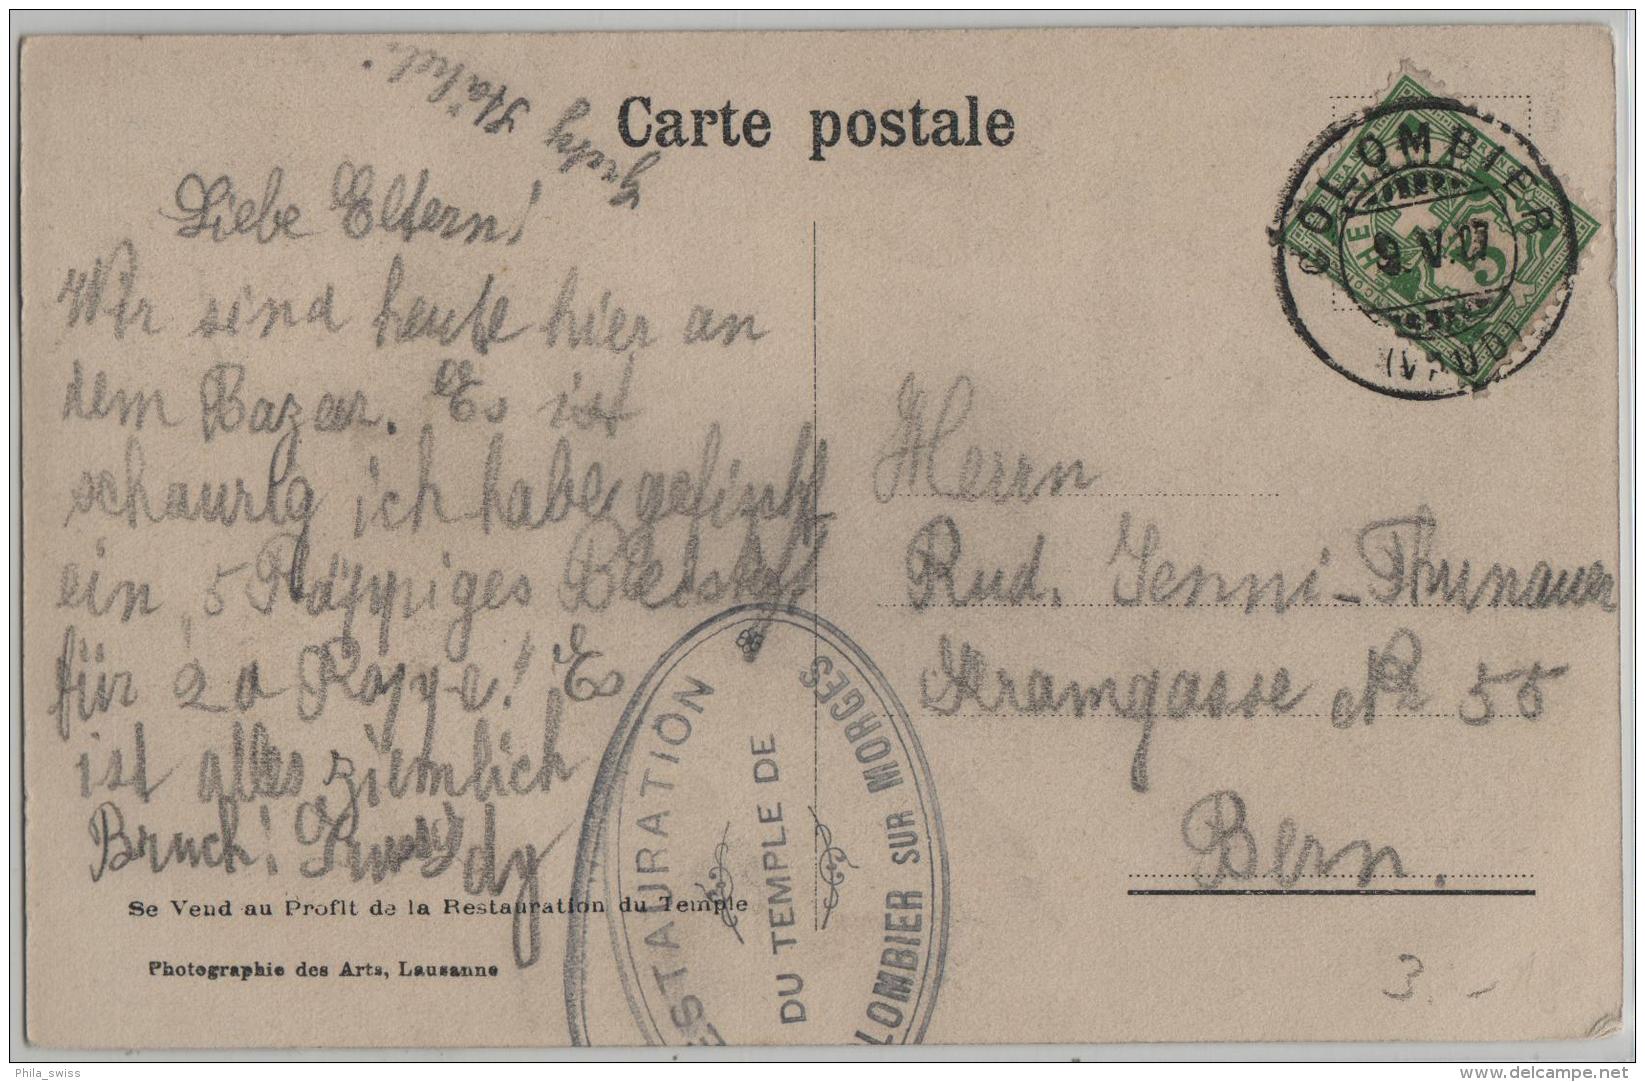 Carte postale
Grety Stähel.
Liebe Eltern!
Wir sind heute hier an
dem Bazar. Es ist
schaurig ich habe gefischt
ein 5 Räppiges
für 20 Rappe! Es
ist alles ziemlich
Bruch!
Se Vend au Profit de la Restauration du Temple
Photographie des Arts, Lausanne
COLOMBIER
9.V.07
(VAUD)
HELVETIA
5
Herrn
Rud. Jenni-Thunauer
Kramgasse No 55
Bern.
ESTAURATION
DU TEMPLE DE
LOMBIER SUR MORGES
3.-
Phila_swiss
delcampe.net